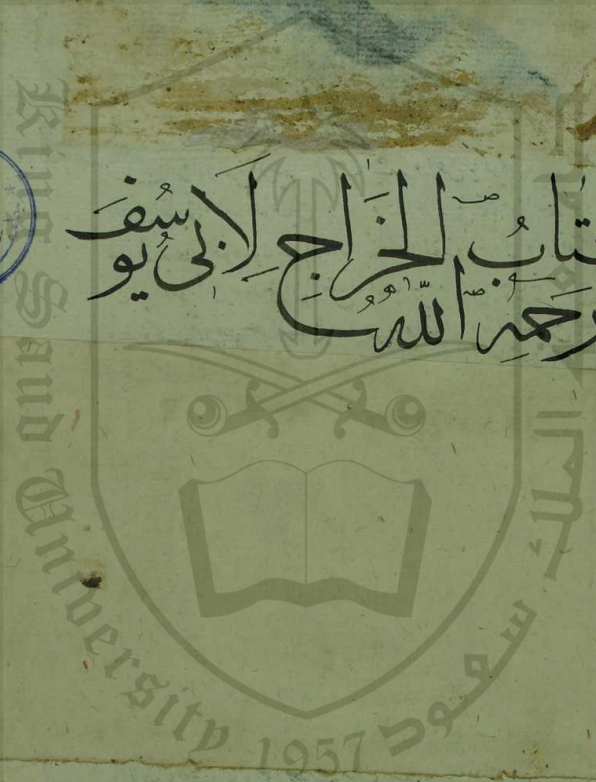 تابُ الخَرَاجِ لِأبي يوسُفَ
رَحمِه اللّه
King Saud University 1957
الملك سعود